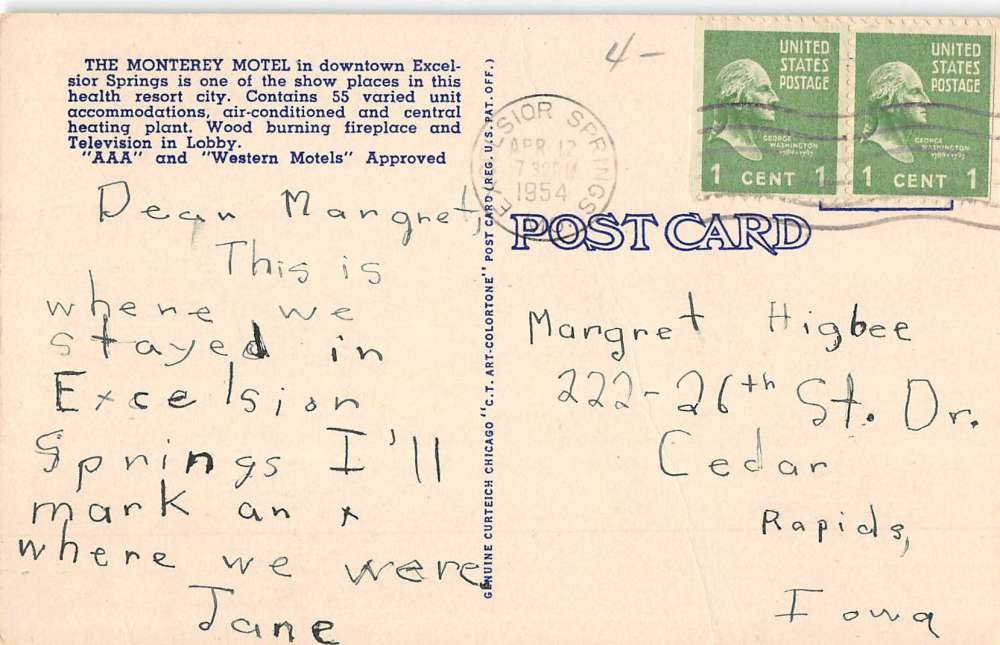 THE MONTEREY MOTEL in downtown Excel-
sior Springs is one of the show places in this
health resort city. Contains 55 varied unit
accommodations, air-conditioned and central
heating plant. Wood burning fireplace and
Television in Lobby.
"AAA" and "Western Motels" Approved
Dear Margret,
This is
where we
stayed in
Excelsior
Springs I'll
mark an x
where we were
Jane
GENUINE CURTEICH CHICAGO "C.T. ART-COLORTONE" POST CARD (REG. U.S. PAT. OFF.)
4-
EXCELSIOR SPRINGS
APR 12
7 30 PM
1954
MO.
UNITED
STATES
POSTAGE
GEORGE
WASHINGTON
1789-1797
1 CENT 1
UNITED
STATES
POSTAGE
GEORGE
WASHINGTON
1789-1797
1 CENT 1
POST CARD
Margret Higbee
222-26th St. Dr.
Cedar
Rapids,
Iowa